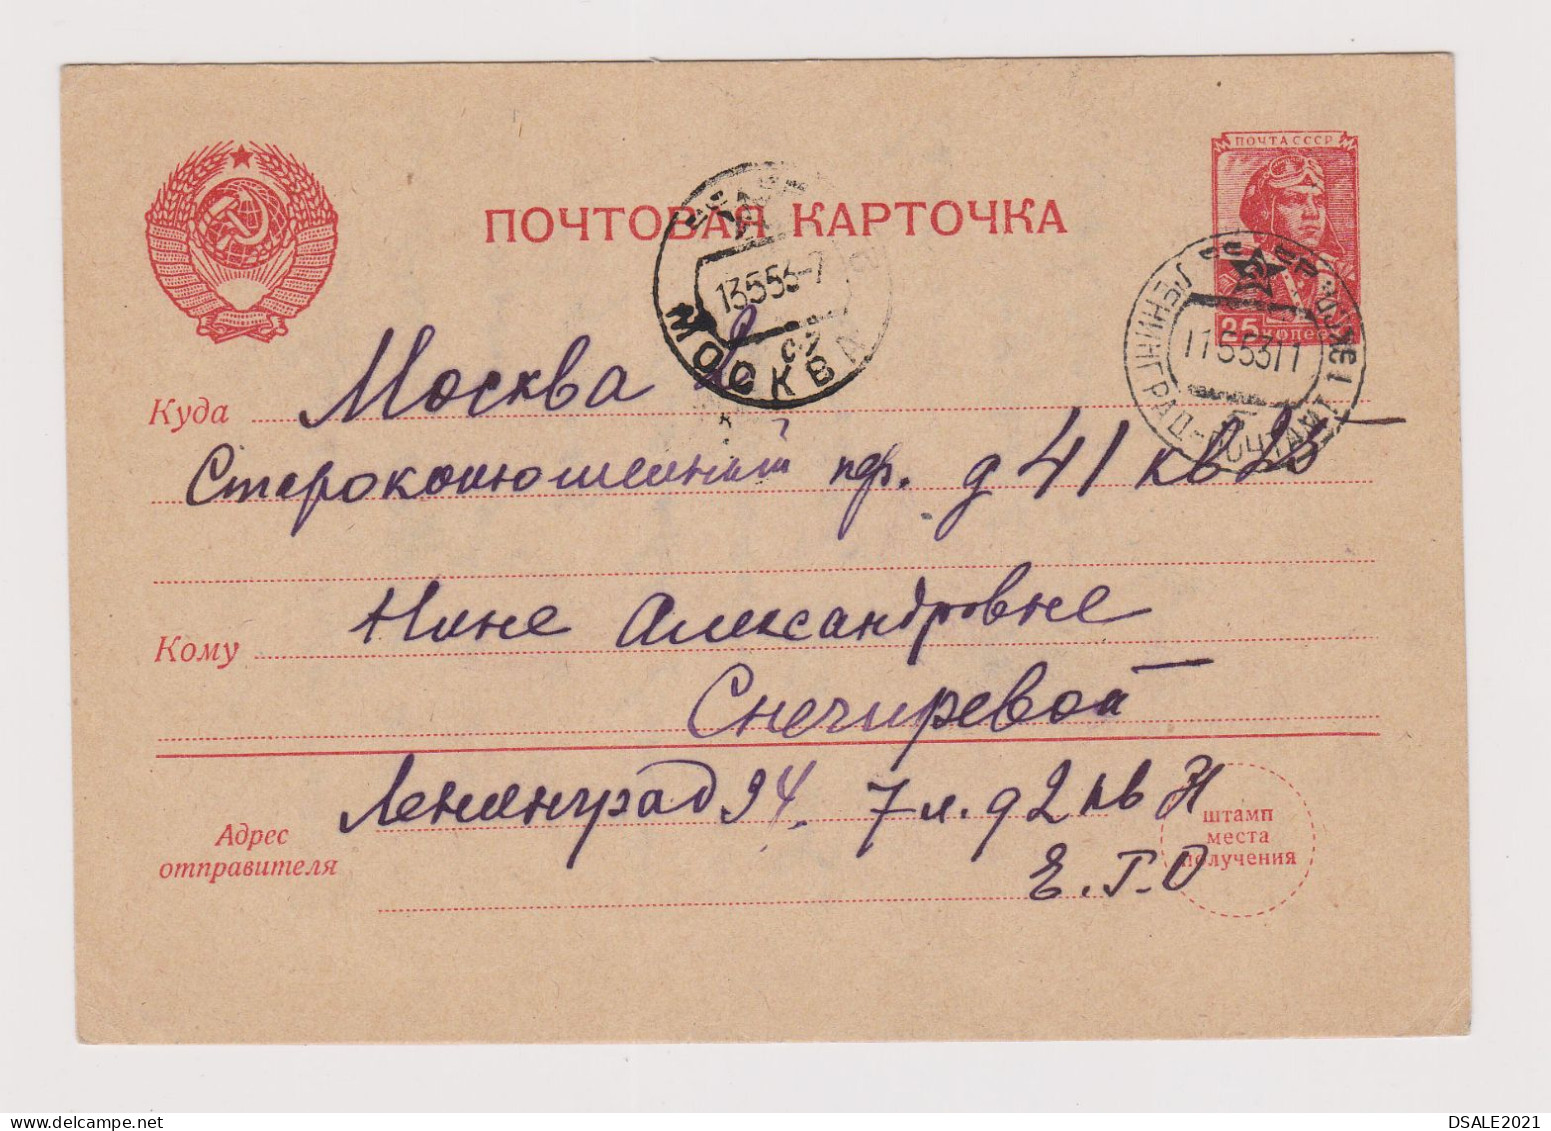 ПОЧТА СССР
ПОЧТОВАЯ КАРТОЧКА
13 5 53-7
МОСКВА
25 КОПЕЕК
11 5 53 11
ЛЕНИНГРАД-ПОЧТАМТ
Куда Москва 2
Староконюшенный пер. д 41 кв 25
Кому Нине Александровне
Снегиревой
Ленинград 94. 7 л. д 2 кв
Адрес
отправителя
штамп
места
получения
Е. Г. О
DSALE2021